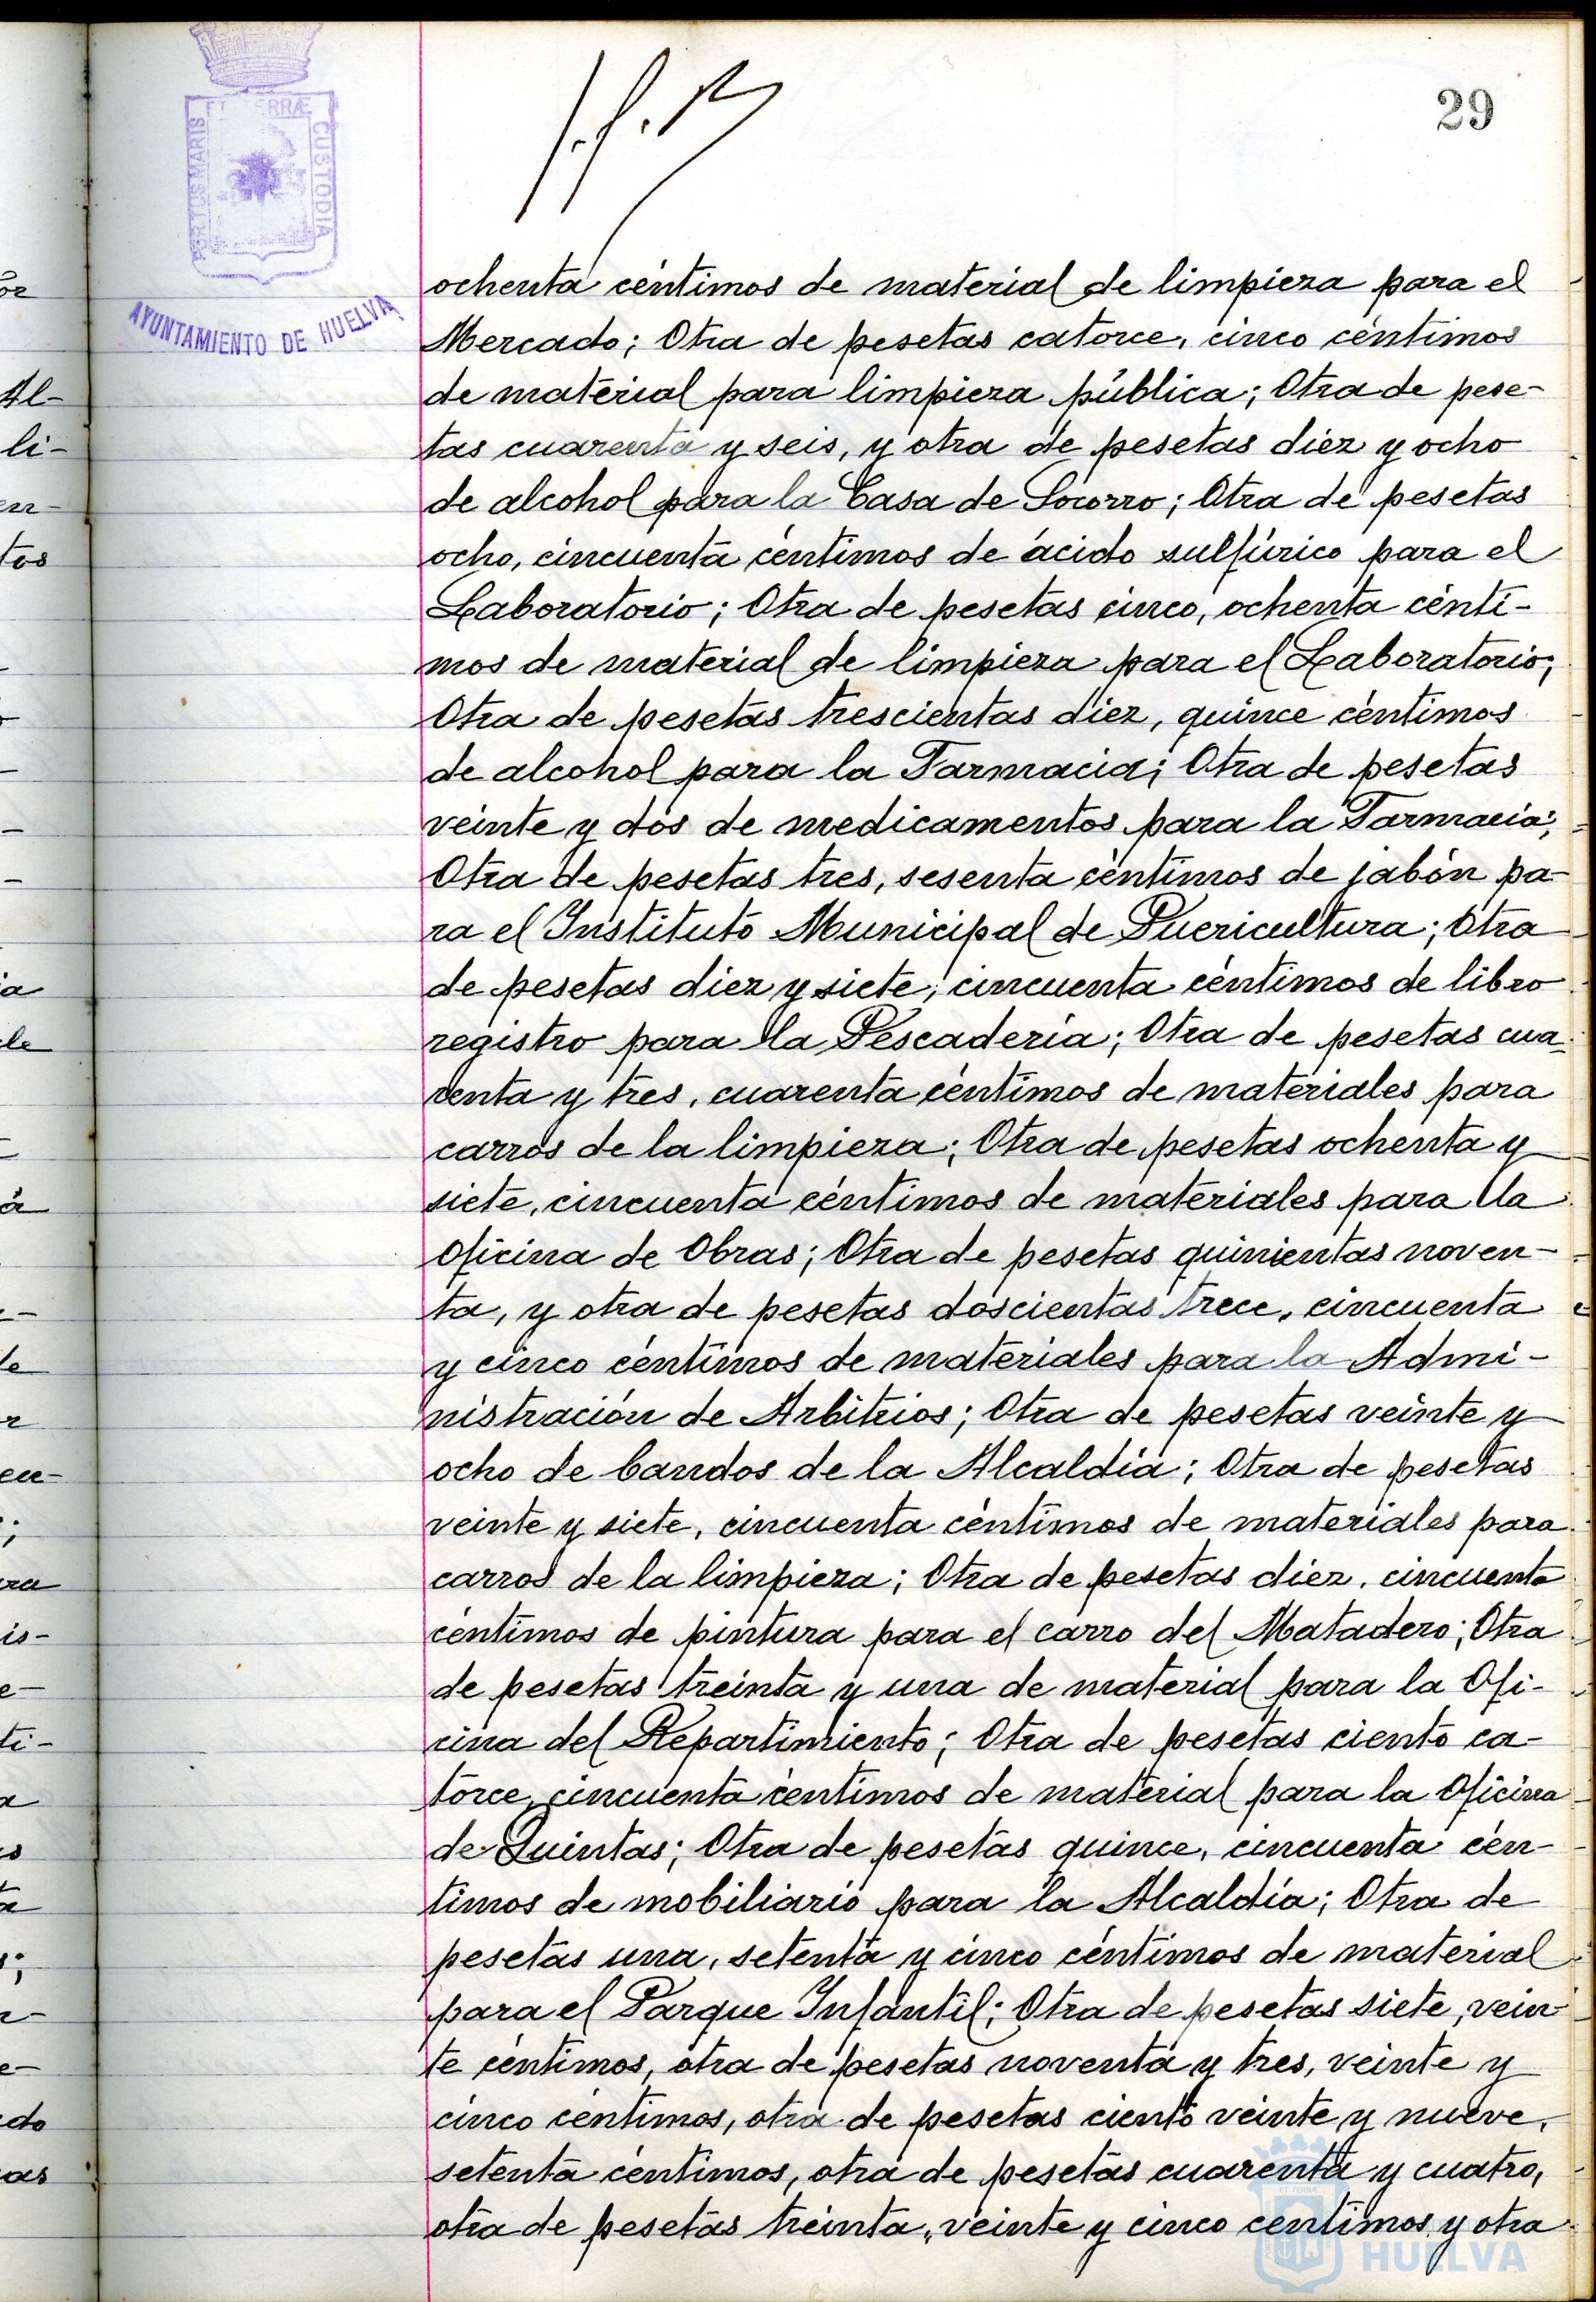 29
PORTUS MARIS ET TERRÆ CUSTODIA
AYUNTAMIENTO DE HUELVA
ochenta céntimos de material de limpieza para el
Mercado; Otra de pesetas catorce, cinco céntimos
de material para limpieza pública; Otra de pese-
tas cuarenta y seis, y otra de pesetas diez y ocho
de alcohol para la Casa de Socorro; Otra de pesetas
ocho, cincuenta céntimos de ácido sulfúrico para el
Laboratorio; Otra de pesetas cinco, ochenta cénti-
mos de material de limpieza para el Laboratorio;
Otra de pesetas trescientas diez, quince céntimos
de alcohol para la Farmacia; Otra de pesetas
veinte y dos de medicamentos para la Farmacia;
Otra de pesetas tres, sesenta céntimos de jabón pa-
ra el Instituto Municipal de Puericultura; Otra
de pesetas diez y siete, cincuenta céntimos de libro
registro para la Pescadería; Otra de pesetas cua-
renta y tres, cuarenta céntimos de materiales para
carros de la limpieza; Otra de pesetas ochenta y
siete, cincuenta céntimos de materiales para la
Oficina de Obras; Otra de pesetas quinientas noven-
ta, y otra de pesetas doscientas trece, cincuenta
y cinco céntimos de materiales para la Admi-
nistración de Arbitrios; Otra de pesetas veinte y
ocho de bandos de la Alcaldía; Otra de pesetas
veinte y siete, cincuenta céntimos de materiales para
carros de la limpieza; Otra de pesetas diez, cincuenta
céntimos de pintura para el carro del Matadero; Otra
de pesetas treinta y una de material para la Ofi-
cina del Repartimiento; Otra de pesetas ciento ca-
torce, cincuenta céntimos de material para la Oficina
de Quintas; Otra de pesetas quince, cincuenta cén-
timos de mobiliario para la Alcaldía; Otra de
pesetas una, setenta y cinco céntimos de material
para el Parque Infantil; Otra de pesetas siete, vein-
te céntimos, otra de pesetas noventa y tres, veinte y
cinco céntimos, otra de pesetas ciento veinte y nueve,
setenta céntimos, otra de pesetas cuarenta y cuatro,
otra de pesetas treinta, veinte y cinco céntimos y otra
HUELVA